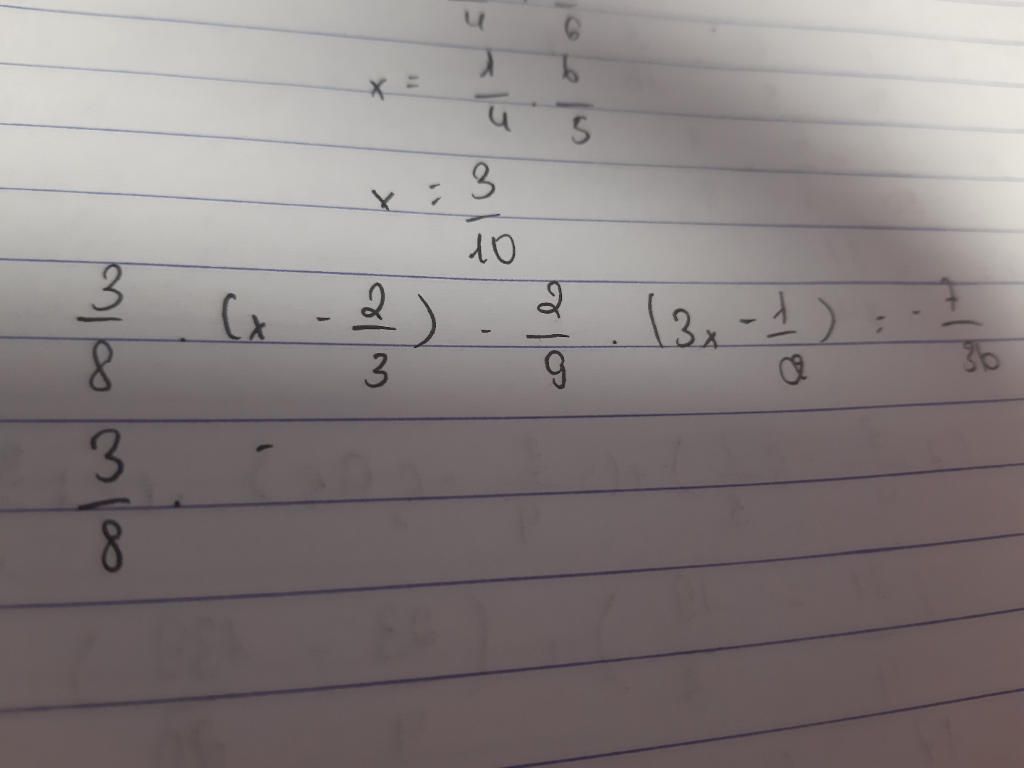 4 6
x = 1/4 . 6/5
x = 3/10
3/8 . (x - 2/3) - 2/9 . (3x - 1/2) = - 7/36
3/8 . -